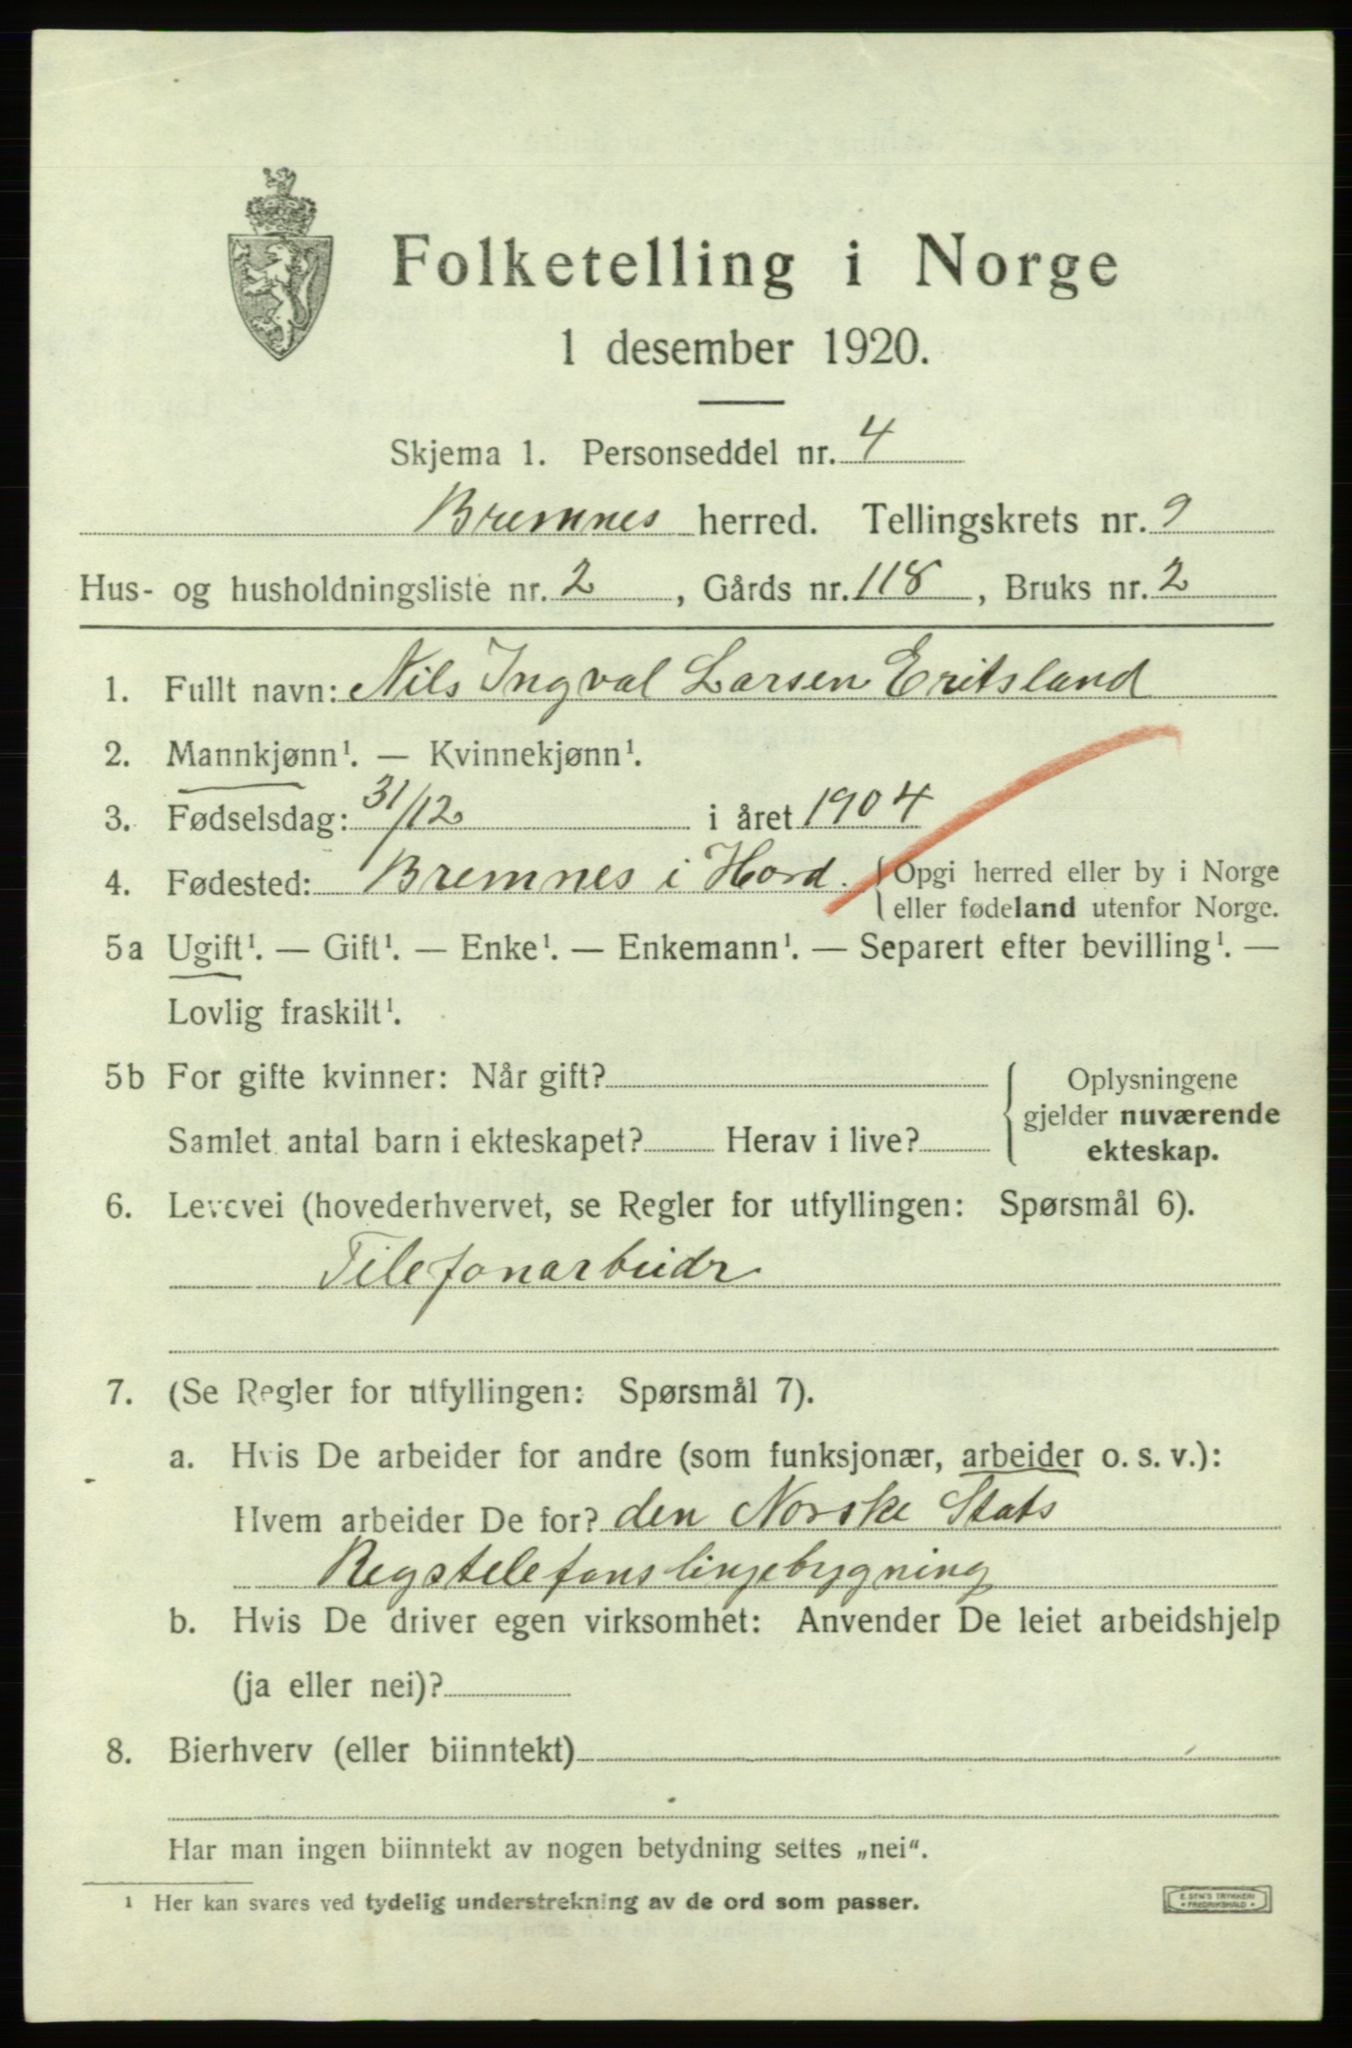 Folketelling i Norge
1 desember 1920.
Skjema 1. Personseddel nr. 4
Bremnes herred. Tellingskrets nr. 9
Hus- og husholdningsliste nr. 2, Gårds nr. 118, Bruks nr. 2
1. Fullt navn: Nils Ingval Larsen Eritsland
2. Mannkjønn¹. — Kvinnekjønn¹.
3. Fødselsdag: 31/12 i året 1904
4. Fødested: Bremnes i Hord. { Opgi herred eller by i Norge
eller fødeland utenfor Norge.
5a Ugift¹. — Gift¹. — Enke¹. — Enkemann¹. — Separert efter bevilling¹. —
Lovlig fraskilt¹.
5b For gifte kvinner: Når gift? { Oplysningene
gjelder nuværende
Samlet antal barn i ekteskapet? Herav i live? ekteskap.
6. Levevei (hovederhvervet, se Regler for utfyllingen: Spørsmål 6).
Tilefonarbeidr
7. (Se Regler for utfyllingen: Spørsmål 7).
a. Hvis De arbeider for andre (som funksjonær, arbeider o. s. v.):
Hvem arbeider De for? den Norske Stats
Regstelefonslinjebygning
b. Hvis De driver egen virksomhet: Anvender De leiet arbeidshjelp
(ja eller nei)?
8. Bierhverv (eller biinntekt)
Har man ingen biinntekt av nogen betydning settes „nei“.
¹ Her kan svares ved tydelig understrekning av de ord som passer.
E. SEM'S TRYKKERI
FREDRIKSHALD